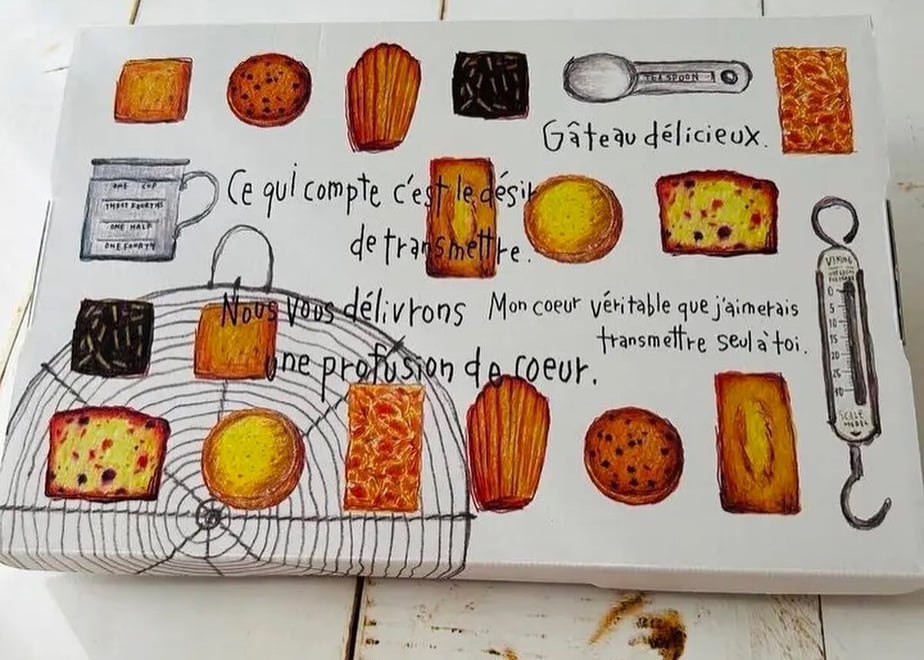 TEASPOON 1
Gâteau délicieux.
ONE CUP
THREE FOURTHS
ONE HALF
ONE FOURTH
Ce qui compte c'est le désir
de transmettre.
Nous vous délivrons
une profusion de coeur.
Mon coeur véritable que j'aimerais
transmettre seul à toi.
VIKING
0
5
10
15
20
25
SCALE
MODEL